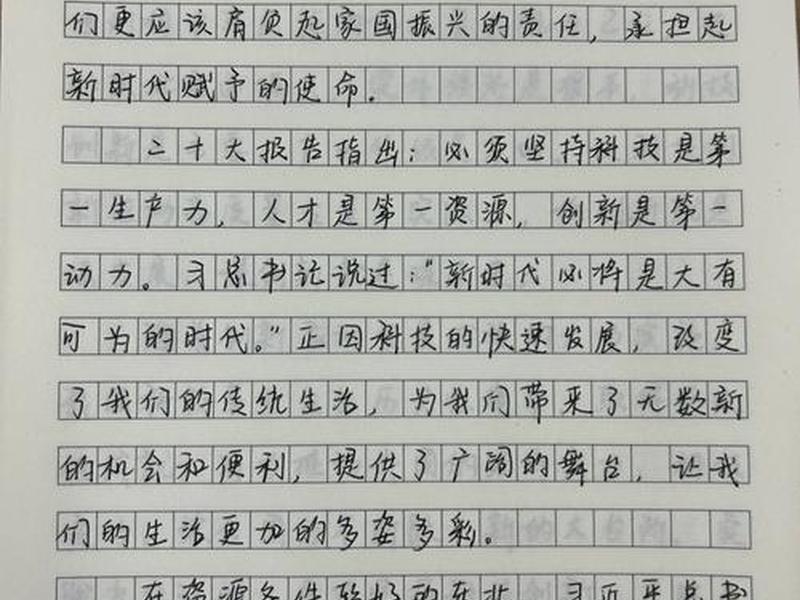 们更应该肩负起家国振兴的责任，承担起
新时代赋予的使命．
二十大报告指出：必须坚持科技是第
一生产力，人才是第一资源，创新是第一
动力。习总书记说过：“新时代必将是大有
可为的时代。”正因科技的快速发展，改变
了我们的传统生活，为我们带来了无数新
的机会和便利，提供了广阔的舞台，让我
们的生活更加的多姿多彩。
在资源条件较好的东北 习近平总书